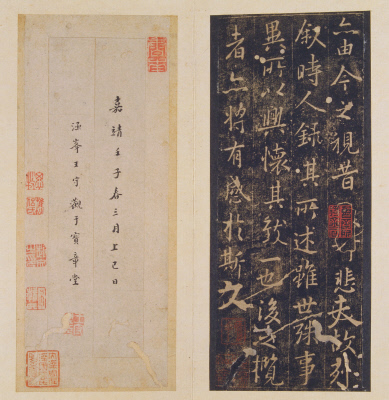 亦由今之視昔悲夫故列
叙時人錄其所述雖世殊事
異所以興懷其致一也後之攬
者亦將有感於斯文
嘉靖壬子春三月上巳日
涵峯王守觀于寶章堂